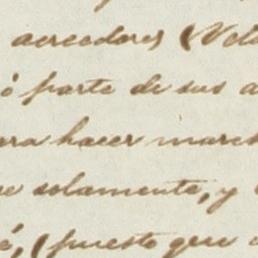 acreedores (Vela
ó parte de sus a
ara hacer march
e solamente, y
é, (puesto que